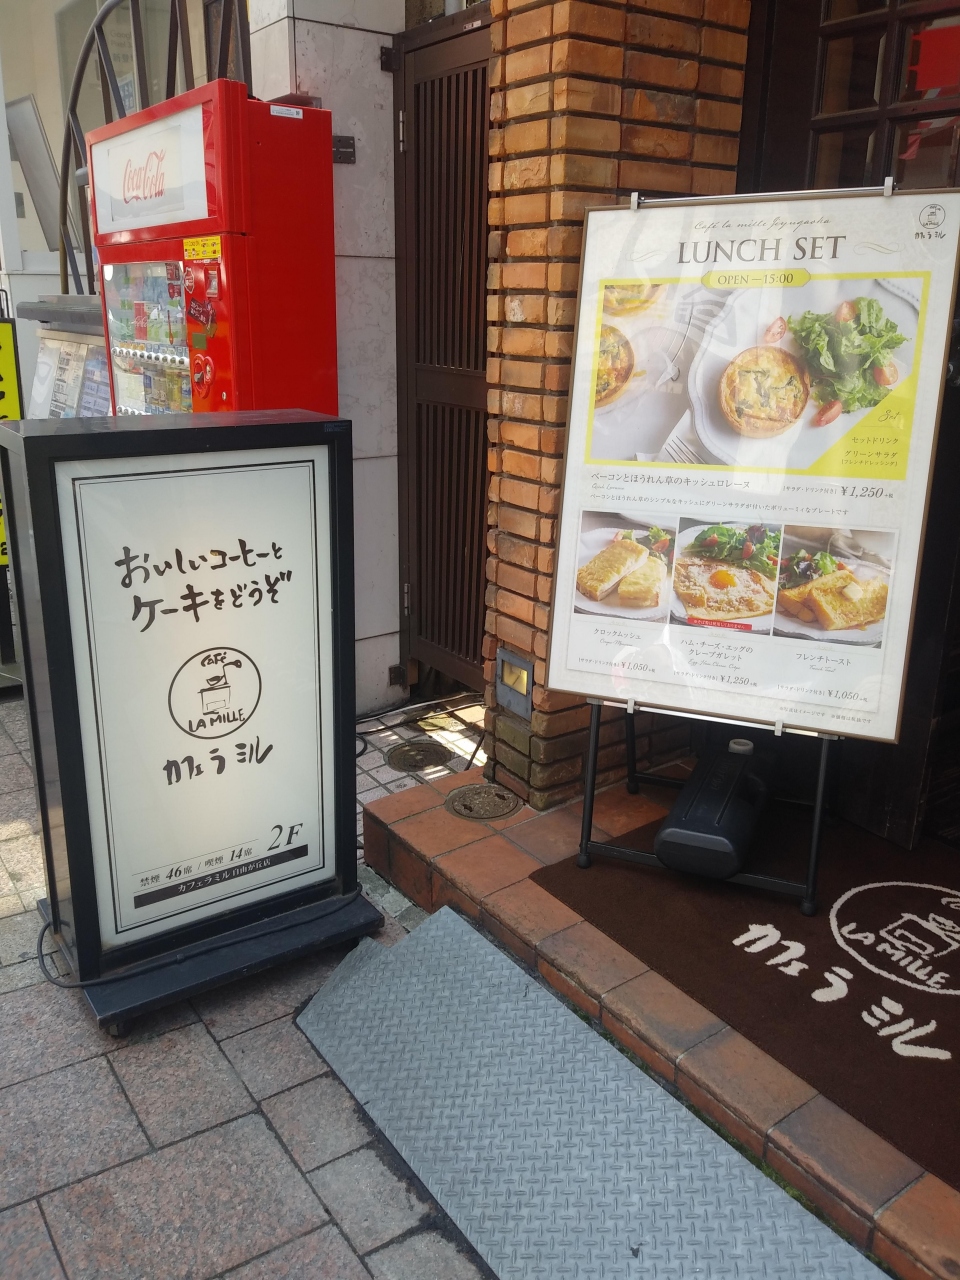 Coca-Cola
おいしいコーヒーと
ケーキをどうぞ
CAFÉ
LA MILLE
カフェ ラ ミル
禁煙 46席 / 喫煙 14席 2F
カフェラミル 自由が丘店
Café la mille Jiyugaoka
LA MILLE
カフェ ラ ミル
LUNCH SET
OPEN—15:00
Set
セットドリンク
グリーンサラダ
(フレンチドレッシング)
ベーコンとほうれん草のキッシュロレーヌ
(サラダ・ドリンク付き) ¥1,250
ベーコンとほうれん草のシンプルなキッシュにグリーンサラダが付いたボリューミィなプレートです
クロックムッシュ
(サラダ・ドリンク付き) ¥1,050
ハム・チーズ・エッグの
クレープガレット
(サラダ・ドリンク付き) ¥1,250
フレンチトースト
(サラダ・ドリンク付き) ¥1,050
LA MILLE
カフェ ラ ミル